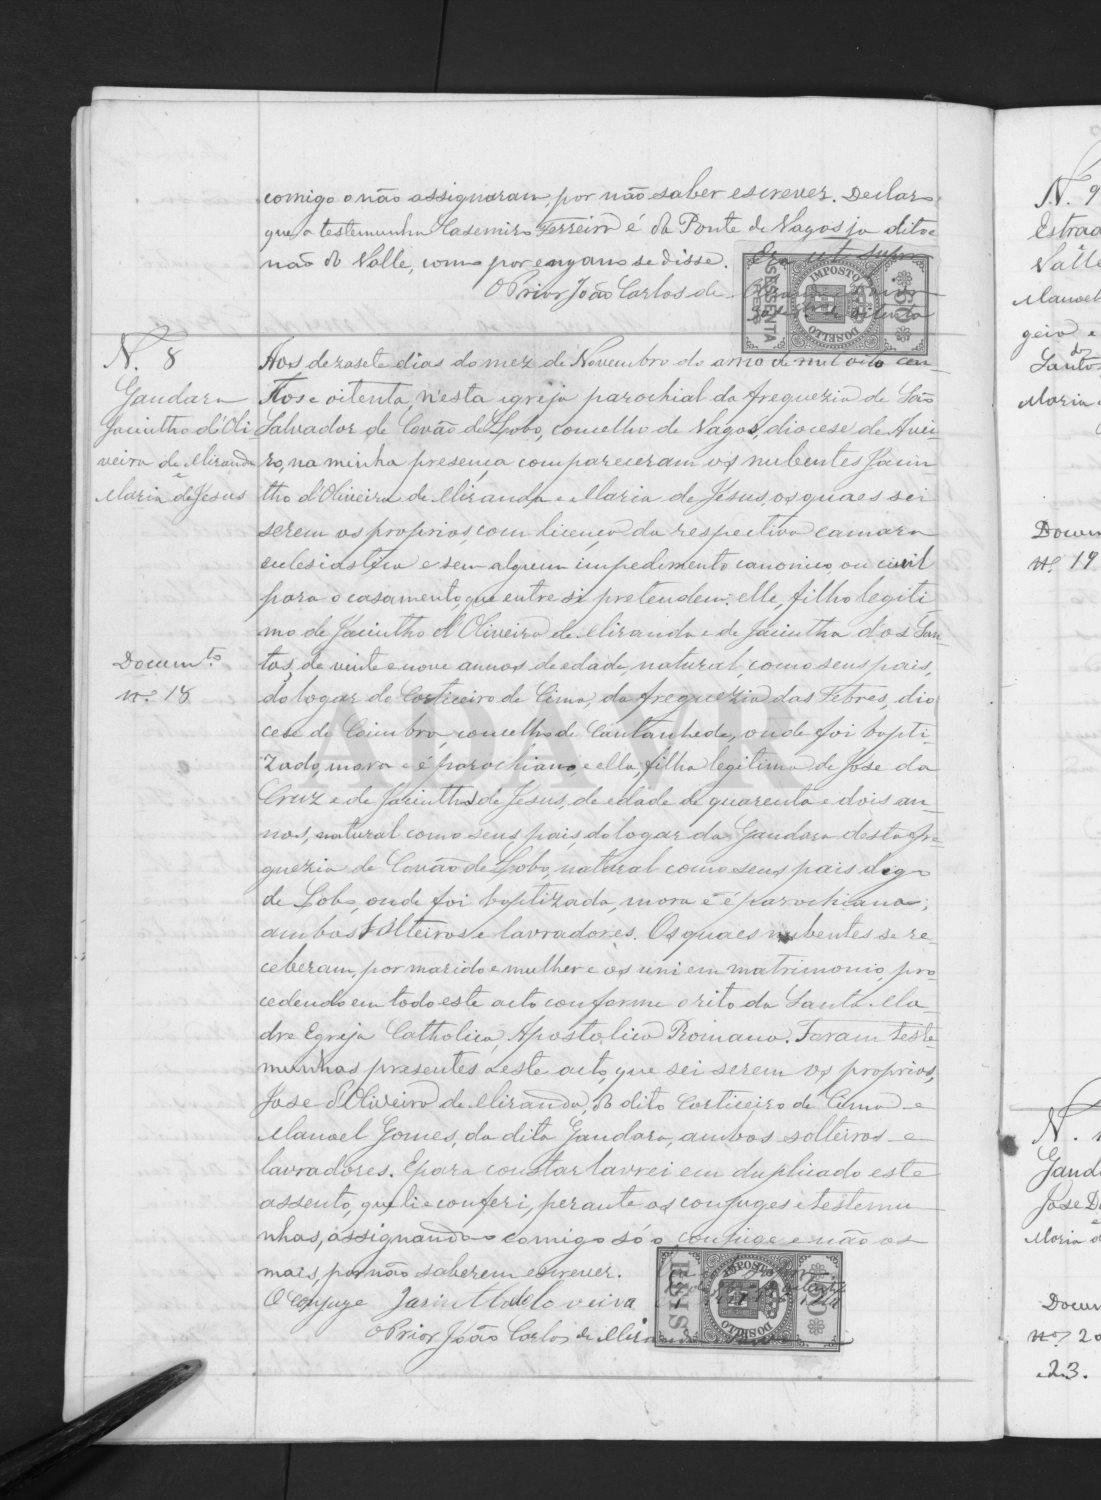 comigo o não assignaram, por não saber escrever. Declaro
que a testemunha Casemiro Ferreira é da Ponte de Vagos ja dito e
não do Valle, como por engano se disse. Era ut supra
O Prior João Carlos de
IMPOSTO DO SELLO
SESSENTA
60
N. 8
Gandara
Jacintho d'Oli
veira de Miranda
e
Maria de Jesus
Docum.to
n.º 18
Aos dezasete dias do mez de Novembro do anno de mil oito cen-
tos e oitenta, n'esta egreja parochial da freguezia de São
Salvador de Covão de Lobo, concelho de Vagos, diocese de Avei-
ro, na minha presença compareceram os nubentes Jacin-
tho d'Oliveira de Miranda e Maria de Jesus, os quaes sei
serem os proprios, com licença da respectiva camara
eclesiastica e sem algum impedimento canonico, ou civil
para o casamento, que entre si pretendem: elle, filho legiti
mo de Jacintho d'Oliveira de Miranda e de Jacintha dos San
tos, de vinte e nove annos de edade, natural, como seus pais,
do logar do Corticeiro de Cima, da freguezia das Febres, dio
cese de Coimbra, concelho de Cantanhede, onde foi bapti-
zado, mora e é parochiano, e ella, filha legitima de Jose da
Cruz e de Jacintha de Jesus, de edade de quarenta e dois an-
nos, natural como seus pais, do logar da Gandara desta fre-
guezia de Covão de Lobo, natural como seus pais digo
de Lobo, onde foi baptizada, mora e é parochiana;
ambos solteiros e lavradores. Os quaes nubentes se re-
ceberam, por marido e mulher e os uni em matrimonio, pro
cedendo em todo este acto conforme o rito da Santa Ma-
dre Egreja Catholica, Apostolica Romana. Foram teste-
munhas presentes a este acto, que sei serem os proprios,
Jose d'Oliveira de Miranda, do dito Corticeiro de Cima e
Manoel Gomes, da dita Gandara, ambos solteiros e
lavradores. E para constar lavrei em duplicado este
assento, que li e conferi, perante os conjuges e testemu
nhas, assignando comigo só o conjuge e não os
mais, por não saberem escrever.
O Conjuge Jacintho de
O Prior João Carlos de Miranda
IMPOSTO DO SELLO
ADAVR
N. 9
Estrada
Valle
Manoel
geiro e
Santos
Maria
Docum
n.º 19
N.
Ganda
Jose D
e
Maria d
Docum
n.os 20
e 23.